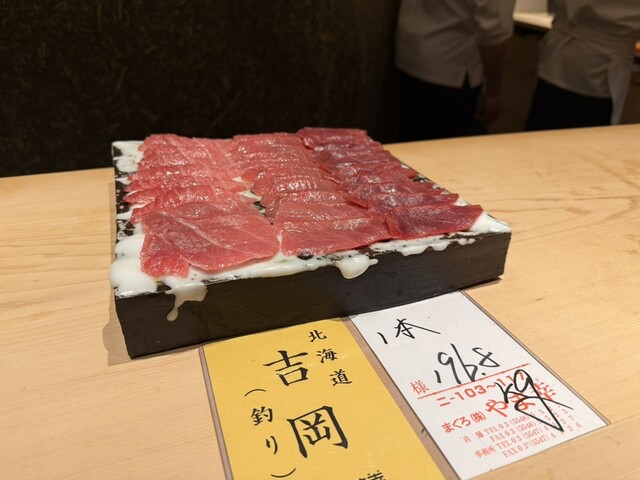 北海道
吉岡
(釣り)
1本
196.8
kg
様
ニ-103~
まぐろ ㈱ やま幸